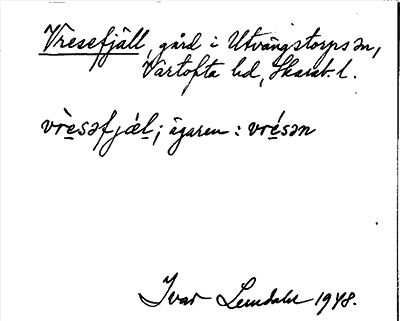 Vresefjäll, gård i Utvängstorps sn,
Vartofta hd, Skarab. l.
vrèsəfjäl; ägaren: vrésən
Ivar Lundahl 1948.